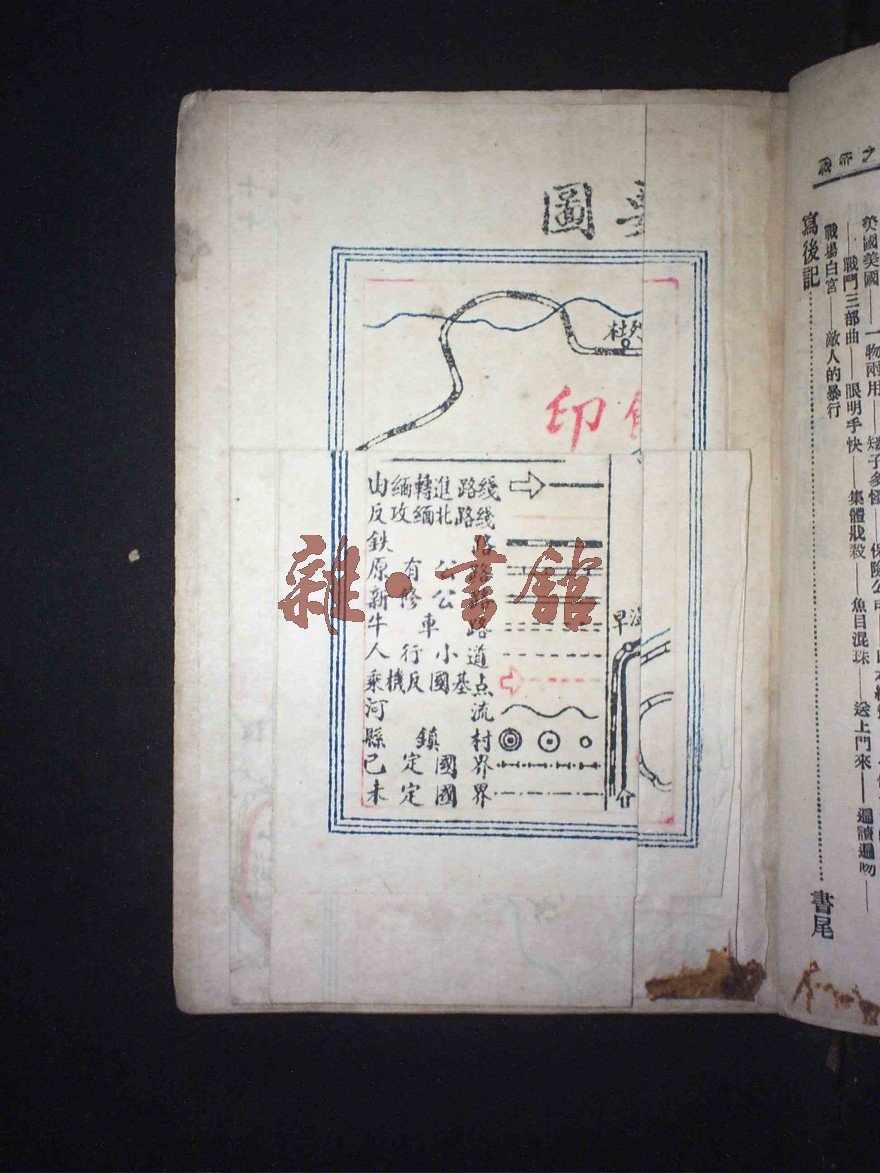 圖
印
山緬轉進路綫
反攻緬北路綫
鉄路
原有公路
新修公路
牛車路
人行小道
乘機反國基点
河流
縣鎮村
已定國界
未定國界
雜·書館
英國美國——一物兩用——矮子多
——戰鬥三部曲——眼明手快——集體戕殺——魚目混珠——送上門來——
戰場白宮——敵人的暴行
寫後記……書尾